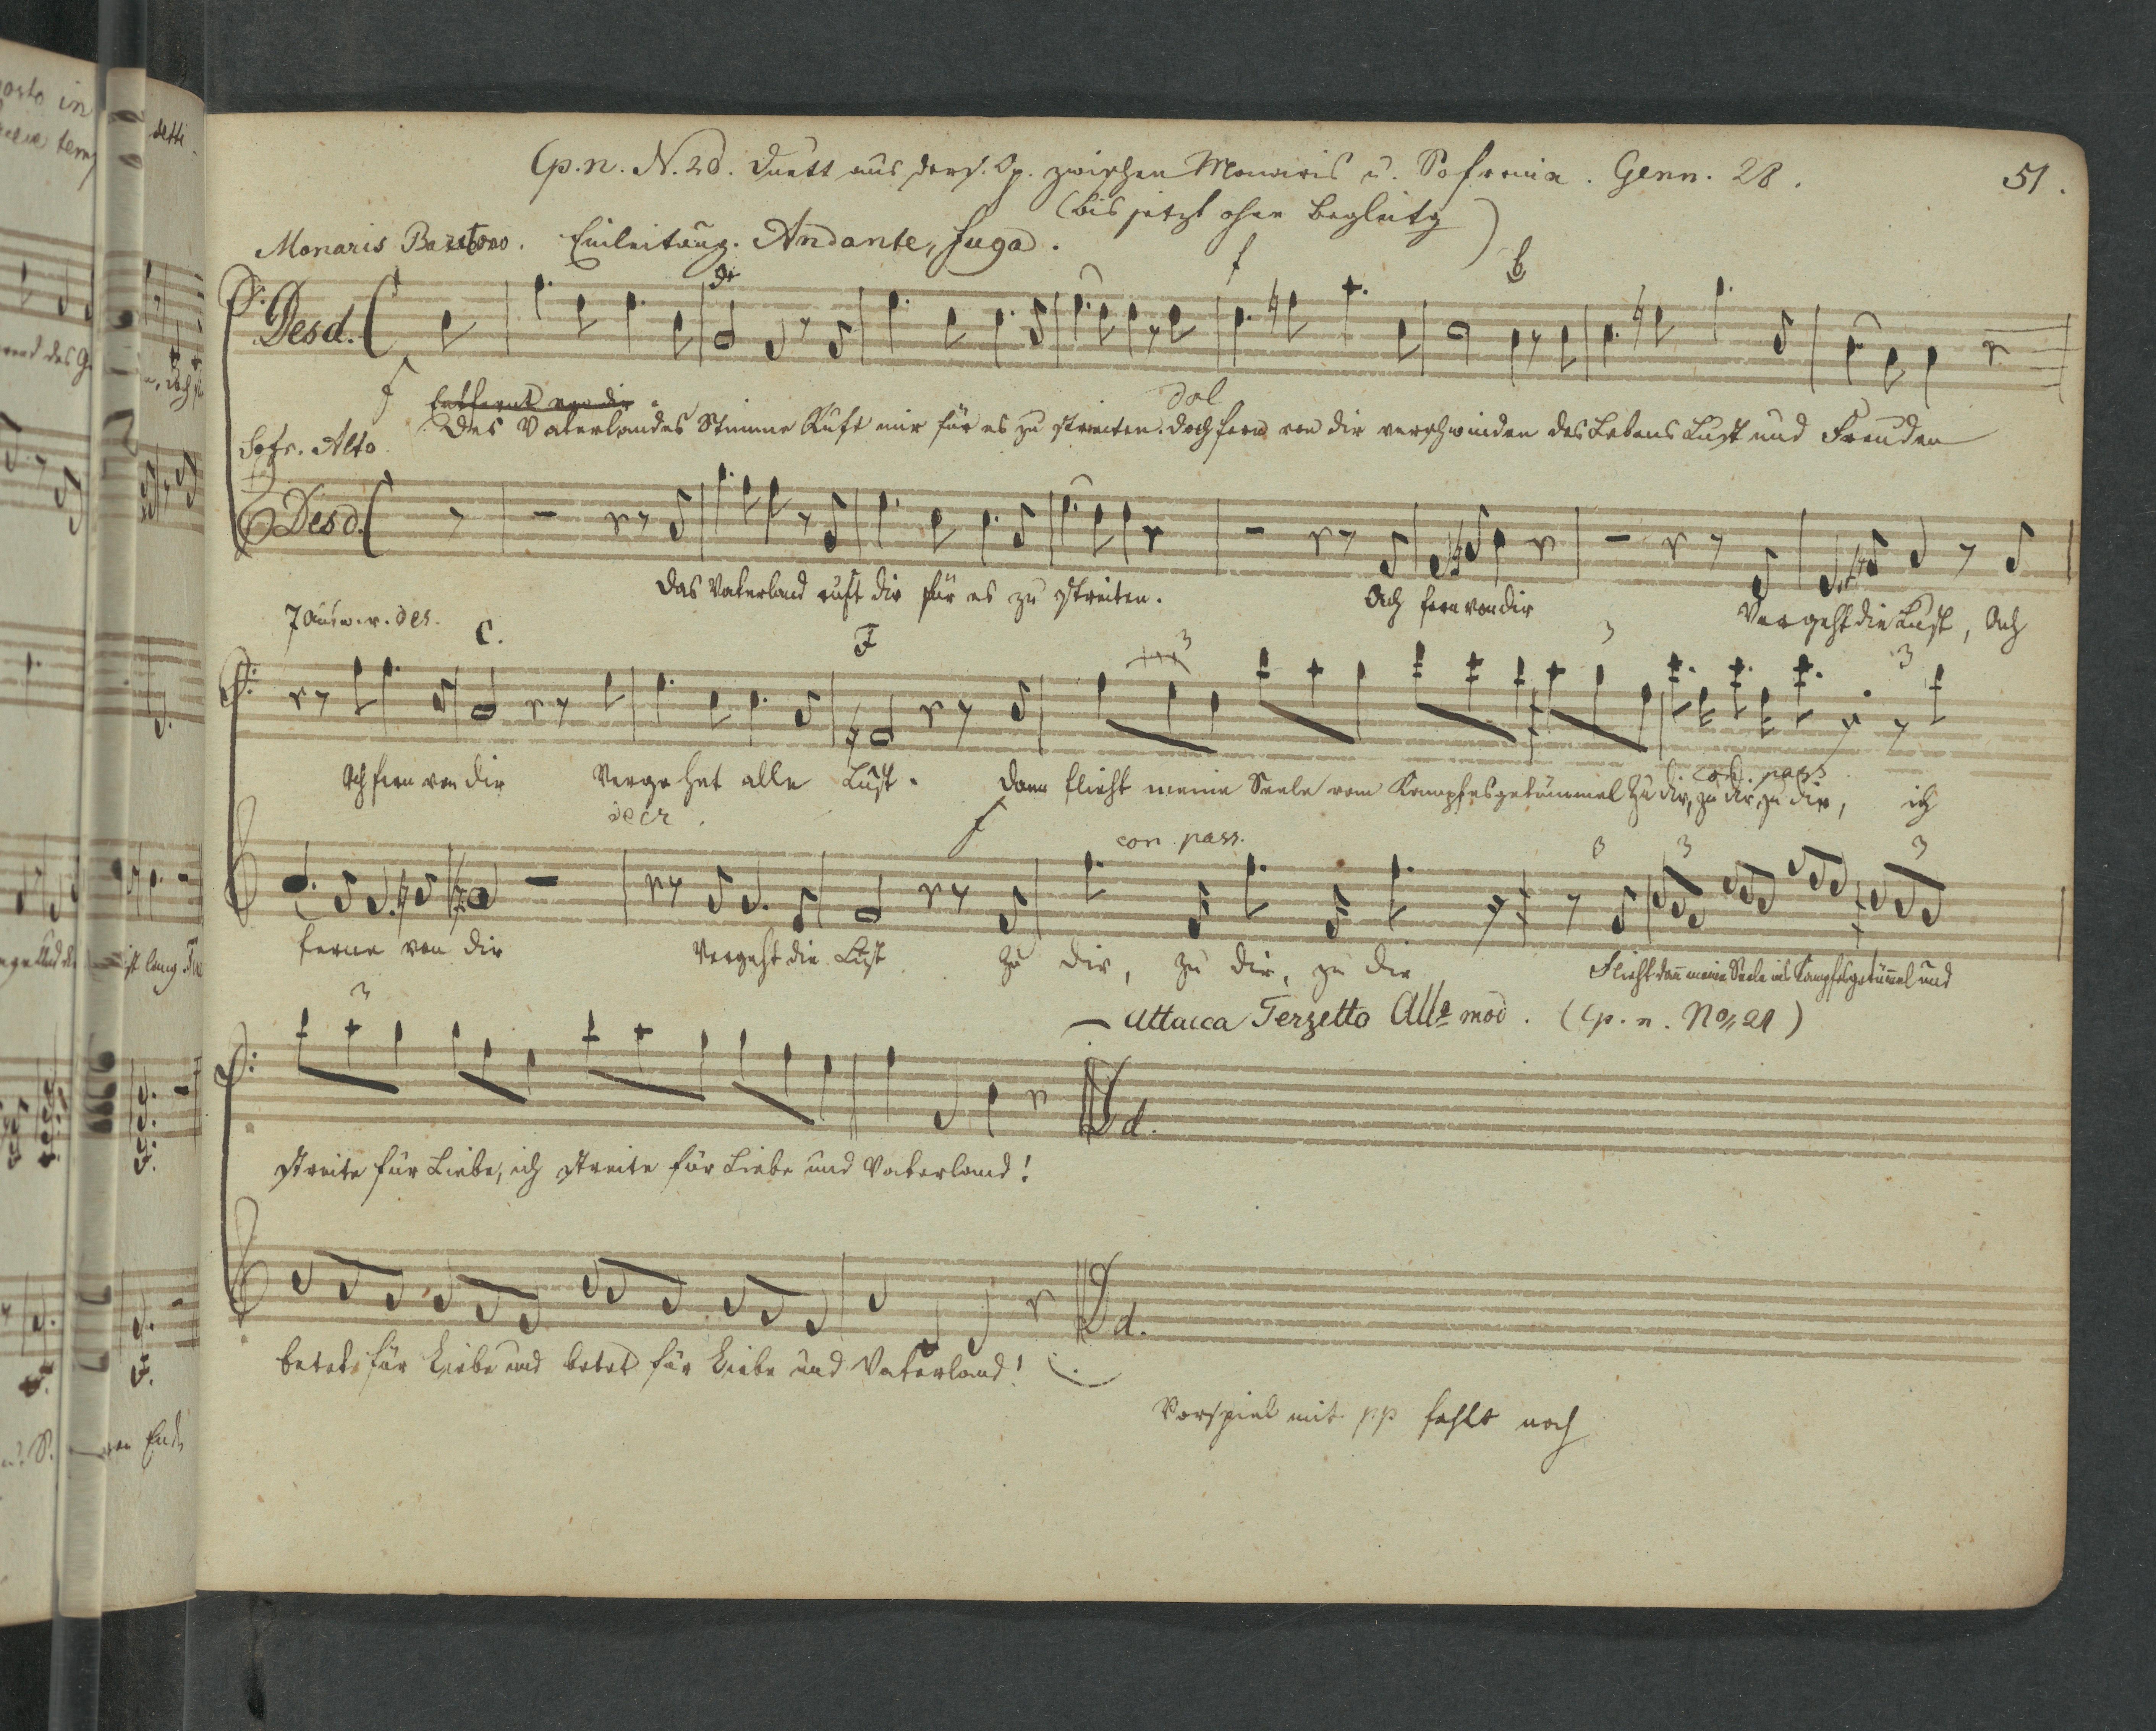 Cp. n. N. 20. Duett aus ders. Op. zwischen Monaris u. Sofronia. Genn. 28.
51.
(bis jetzt ohne Begleitg)
Monaris Baritono. Einleitung. Andante, Fuga.
f
Desd. C
f
Entfernt von dir
dol
Des Vaterlandes Stimme Ruft mir für es zu streiten. doch fern von dir verschwinden des Lebens Lust und Freuden
Sofr. Alto
Desd. C
Das Vaterland ruft dir für es zu streiten. Ach fern von dir Vergeht die Lust, Ach
des. C. F 3 3 3
Ach fern von dir Vergehet alle Lust. Dann flieht meine Seele vom Kampfesgetümmel zu dir, zu dir, zu dir, ich
con. pass
decr. f con pass. 3 3
ferne von dir Vergeht die Lust zu dir, zu dir, zu dir Flieht dan̄ meine Seele ins Kampfesgetüm̄el und
3
Attacca Terzetto Allo mod. (Cp. n. No, 21)
d.
streite für Liebe, ich streite für Liebe und Vaterland!
d.
betet für Liebe und betet für Liebe und Vaterland!
Vorspiel mit pp fehlt noch